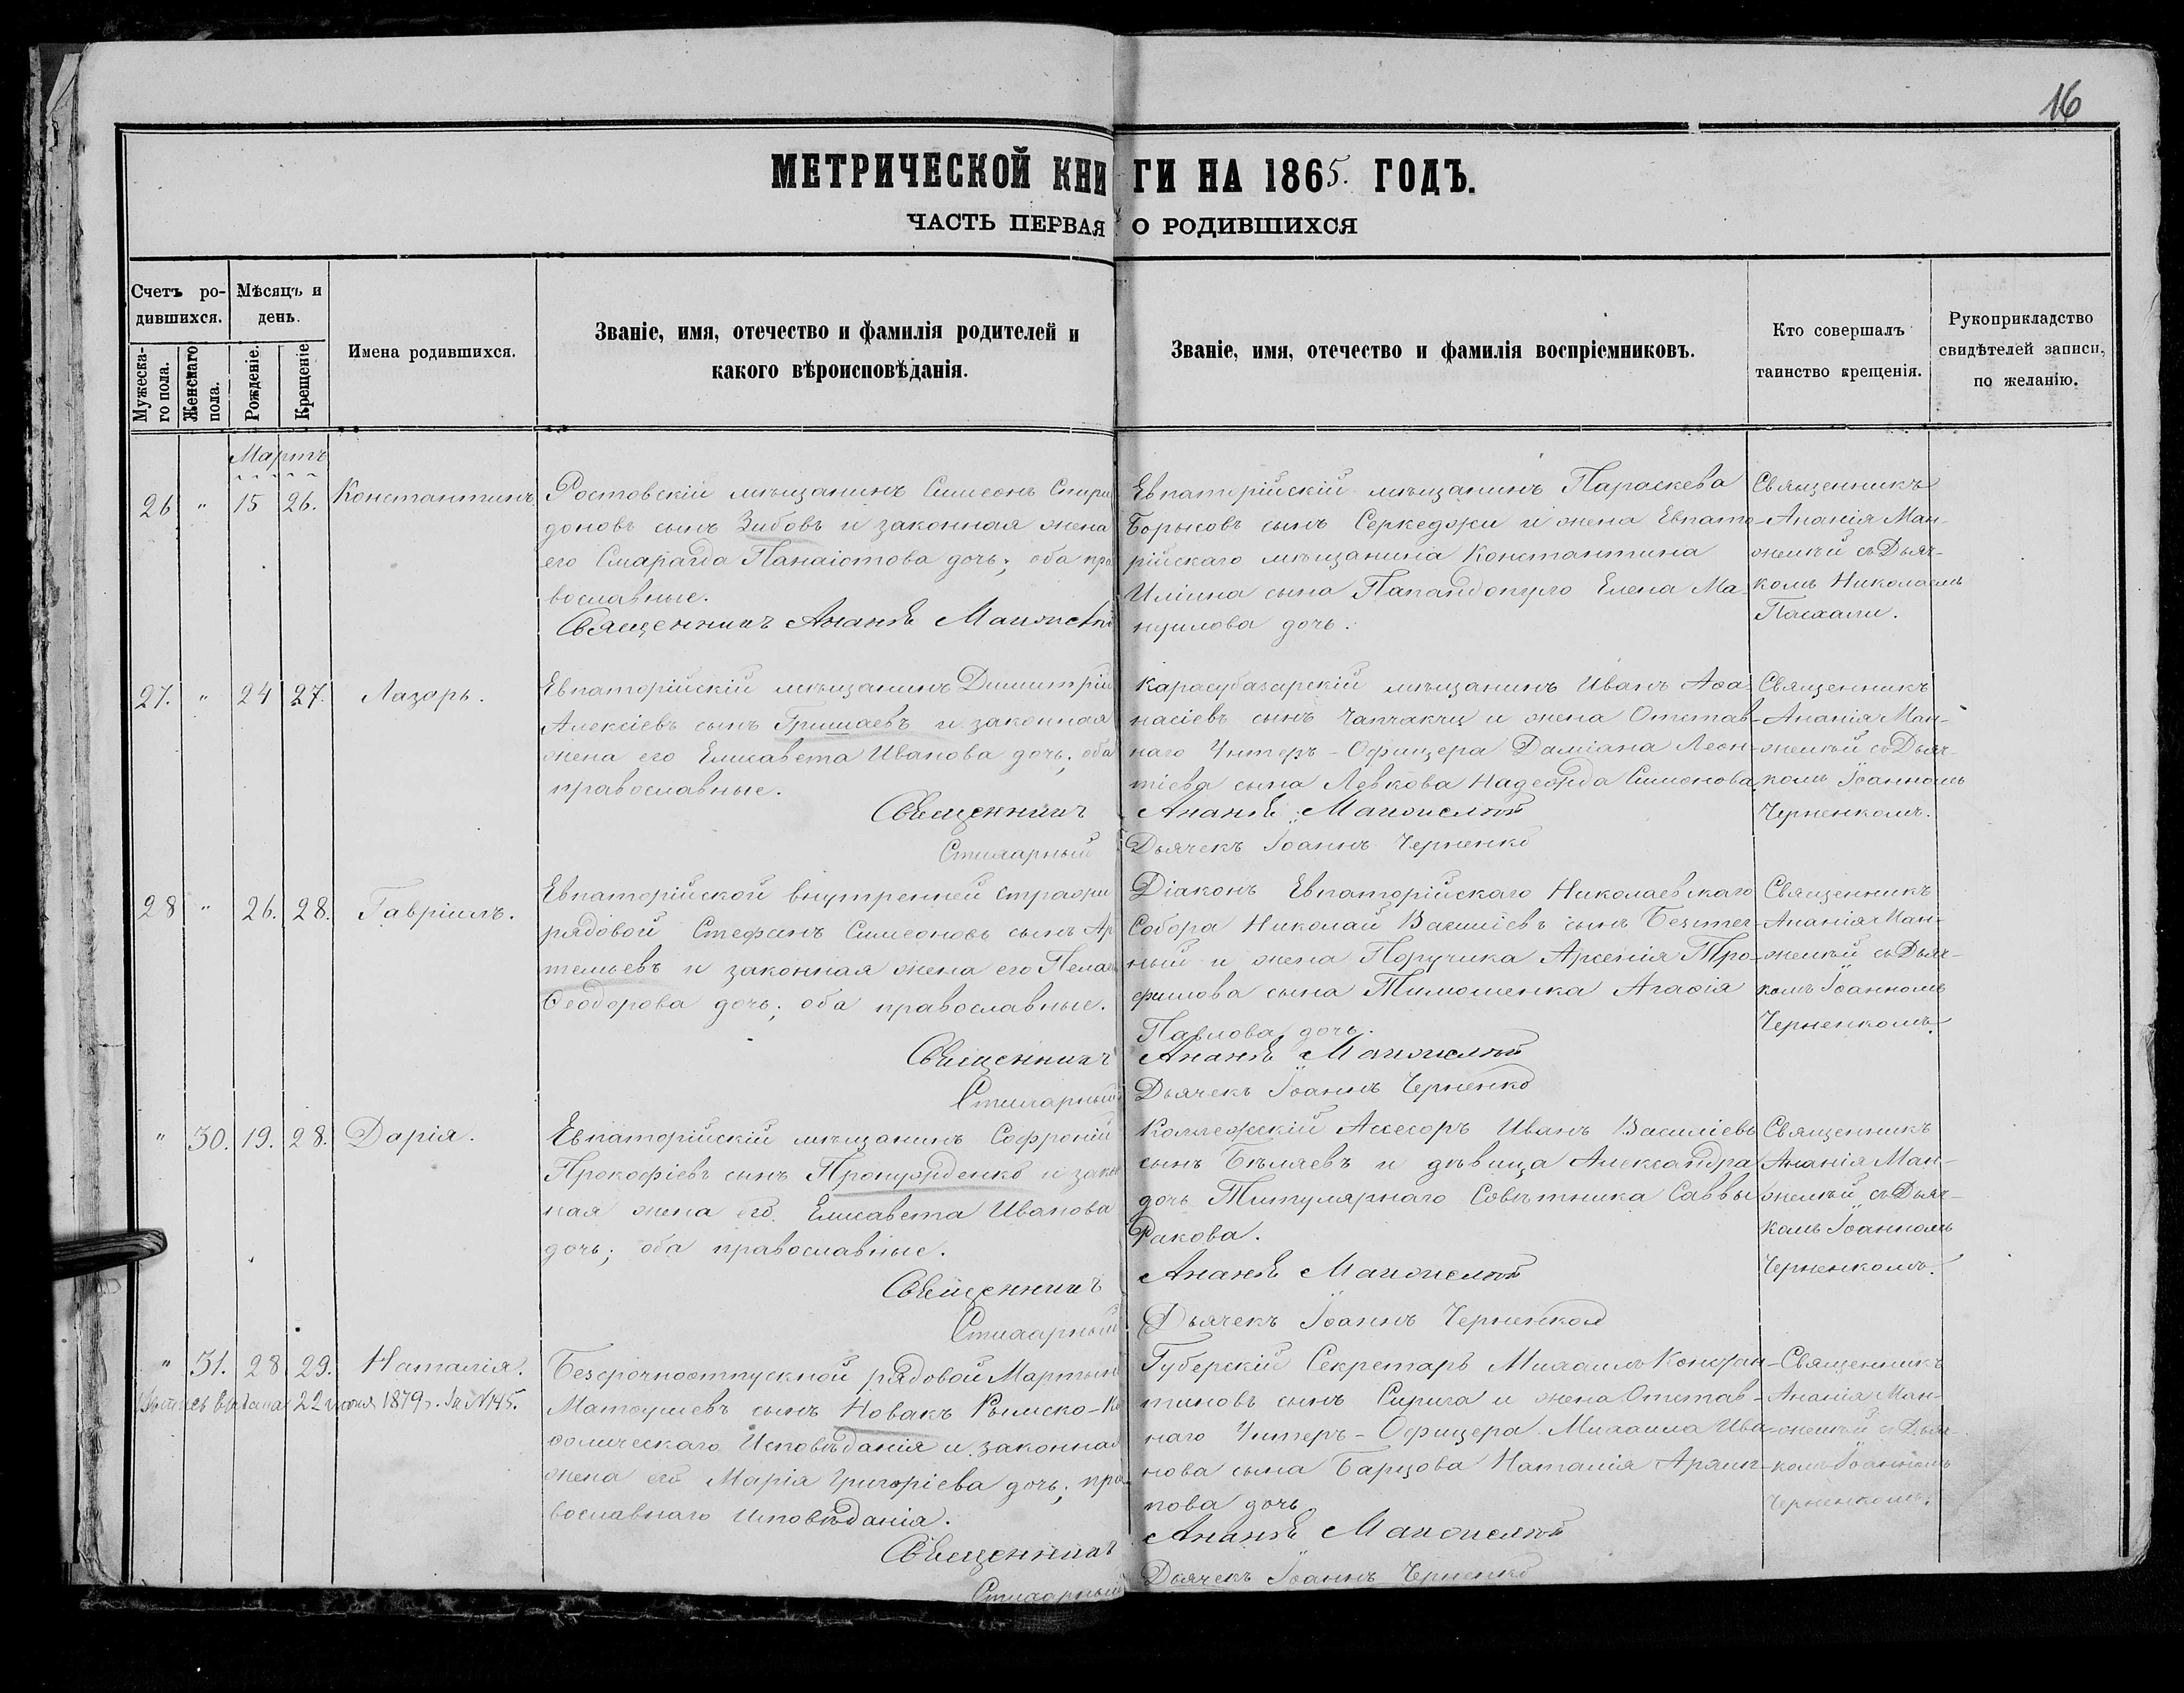 16
МЕТРИЧЕСКОЙ КНИГИ НА 1865. ГОДЪ.
ЧАСТЬ ПЕРВАЯ О РОДИВШИХСЯ
Счетъ ро-
дившихся.
Мѣсяцъ и
день.
Мужеска-
го пола.
Женскаго
пола.
Рожденіе.
Крещеніе
Имена родившихся.
Званіе, имя, отечество и фамилія родителей и
какого вѣроисповѣданія.
Званіе, имя, отечество и фамилія воспріемниковъ.
Кто совершалъ
таинство крещенія.
Рукоприкладство
свидѣтелей записи,
по желанію.
Мартъ
26 " 15 26. Константинъ
Ростовскій мѣщанинъ Симеонъ Спири
доновъ сынъ Зибовъ и законная жена
его Смарагда Панаіотова дочь; оба пра
вославные.
Священникъ Ананія
Евпаторійскій мѣщанинъ Параскева
Борисовъ сынъ Серкеджи и жена Евпато-
рійскаго мѣщанина Константина
Иліина сына Папандопуло Елена Ма-
нуилова дочь.
Священникъ
Ананія Ман-
желѣй съ Дьяч-
комъ Николаемъ
Пасхали.
27. " 24 27. Лазорь.
Евпаторійскій мѣщанинъ Димитрій
Алексіевъ сынъ Гришаевъ и законная
жена его Елисавета Иванова дочь; оба
православные.
Священникъ
Стихарный
Карасубазарскій мѣщанинъ Иванъ Аѳа-
насіевъ сынъ Чапчакчи и жена Отстав-
наго Унтеръ-Офицера Даміана Леон-
тіева сына Левкова Надежда Симонова
Ананія Манжелѣй
Дьячекъ Іоаннъ Черненко
Священникъ
Ананія Ман-
желѣй съ Дьяч-
комъ Іоанномъ
Черненкомъ.
28 " 26. 28. Гавріилъ.
Евпаторійской внутренней стражи
рядовой Стефанъ Симеоновъ сынъ Ар
темьевъ и законная жена его Пелагі
Ѳеодорова дочь; оба православные.
Священникъ
Стихарный
Діаконъ Евпаторійскаго Николаевскаго
Собора Николай Василіевъ сынъ
ный и жена Поручика Арсенія Тро-
фимова сына Тимошенка Агаѳія
Павлова дочь.
Ананія Манжелѣй
Дьячекъ Іоаннъ Черненко
Священникъ
Ананія Ман-
желѣй съ Дьяч-
комъ Іоанномъ
Черненкомъ.
" 30. 19. 28. Дарія.
Евпаторійскій мѣщанинъ Софроній
Прокофіевъ сынъ и закон
ная жена его Елисавета Иванова
дочь; оба православные.
Священникъ
Стихарный
Коллежскій Ассесоръ Иванъ Василіевъ
сынъ Бѣляевъ и дѣвица Александра
дочь Титулярнаго Совѣтника Саввы
Ракова.
Ананія Манжелѣй
Дьячекъ Іоаннъ Черненко
Священникъ
Ананія Ман-
желѣй съ Дьяч-
комъ Іоанномъ
Черненкомъ.
" 31. 28 29. Наталія.
выдана 22 1879 г. За №145.
Безсрочноотпускной рядовой Мартынъ
Матоушевъ сынъ Новакъ Римско-Ка
ѳолическаго Исповѣданія и законная
жена его Марія Григоріева дочь; пра-
вославнаго Исповѣданія.
Священникъ
Стихарный
Губерскій Секретарь Михаилъ Констан-
тиновъ сынъ Сирига и жена Отстав-
наго Унтеръ-Офицера Михаила Ива-
нова сына Барцова Наталія
пова дочь
Ананія Манжелѣй
Дьячекъ Іоаннъ Черненко
Священникъ
Ананія Ман-
желѣй съ Дьяч-
комъ Іоанномъ
Черненкомъ.